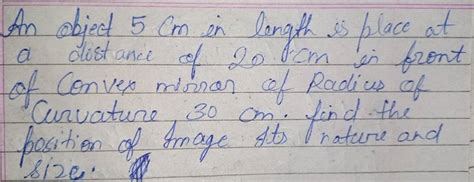 An object 5 Cm in length is place at
a distance of 20 cm in front
of Convex mirror of Radius of
Curvature 30 cm. find the
position of Image Its nature and
size.